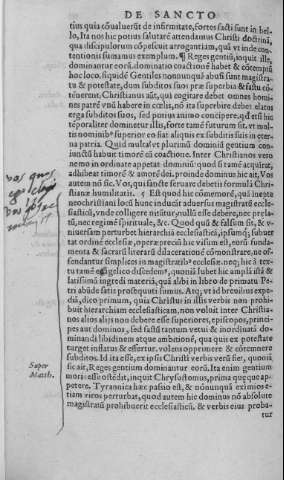 DE SANCTO
tius quia cōualuerūt de infirmitate, fortes facti sunt in bel-
lo, Ita nos hic potius salutarē attendamus Christi doctrinā,
qua discipulorum cōpescuit arrogantiam, quā vt inde con-
tentionis sumamus exemplum. ¶ Reges gentiū, inquit ille,
dominantur eorū, dominatio coactionē habet & cōtemptū
hoc loco, siquidē Gentiles nonnunquā abusi sunt magistra-
tu & potestate, dum subditos suos præ superbia & fastu cō-
tēnerent. Christianus aūt, qui cogitare debet omnes homi-
nes patrē vnū habere in cœlis, nō ita superbire debet elatus
erga subditos suos, sed potius animo concipere, qđ etsi hic
tēporaliter dominetur illis, forte tamē futurum sit, vt mul-
tis nominibus superior eo fiat aliquis ex subditis suis in æter-
na patria. Quid multa? vt plurimū dominiū gentium con-
iunctū habuit timorē cū coactione. Inter Christianos vero
nemo in ordinate appetat dominiū: quod si tamē acquirat,
adhibeat timorē & amorē dei, proinde dominus hic ait, Vos
autem nō sic. Vos, qui sanctæ seruare debetis formulā Chri-
stianæ humilitatis. ¶ Est quod hic cōmemorē, qui inepta
neochristiani locū hunc inducūt aduersus magistratū eccle-
siasticū, vnde colligere nitūtur, nullū esse debere, nec prela-
tū, nec regimē spirituale, &c. Quod quā & falsum sit, & v-
niuersam perturbet hierarchia ecclesiasticā, ipsumq; subuer-
tat ordinē ecclesiæ, operæpreciū hic visum est, eorū funda-
menta & sacrarū literarū dilacerationē cōmonstrare, ne of-
fendantur simplices in magistratib' ecclesiæ: neq; hic à tex-
tu tamē euāgelico discedemus, quoniā subet hic amplā istā &
latissimā ingredi materiā, quā alibi in libro de primatu Pe-
tri abūde satis profequuti sumus. At q;, vt id breuius expe-
diū, dico primum, quia Christus in illis verbis non prohi-
buit hierarchiam ecclesiasticam, non voluit inter Christia-
nos alios alijs non debere esse superiores, episcopos, princi-
pes aut dominos, sed fastū tantum vetuit & inordinatā do-
minandi libidinem atque ambitionē, qua quis ex potestate
turget inflatus & effertur, volens opprimere & cōtemnere
subditos. Id ita esse, ex ipsis Christi verbis verū fiet, quoniā
sic ait, Reges gentium dominantur eorū. Ita enim gentium
mori esse ostēdit, inquit Chrysostomus, prima quæque ap-
petere. Tyrannica hæc passio est, & nonnunquā eximios e-
tiam viros perturbat, quod autem hic dominus nō absolute
magistratū prohibuerit ecclesiasticū, & verbis eius proba-
tur
Super
Matth.